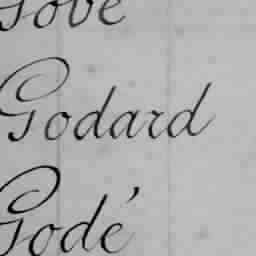 Gove
Godard
Gode'